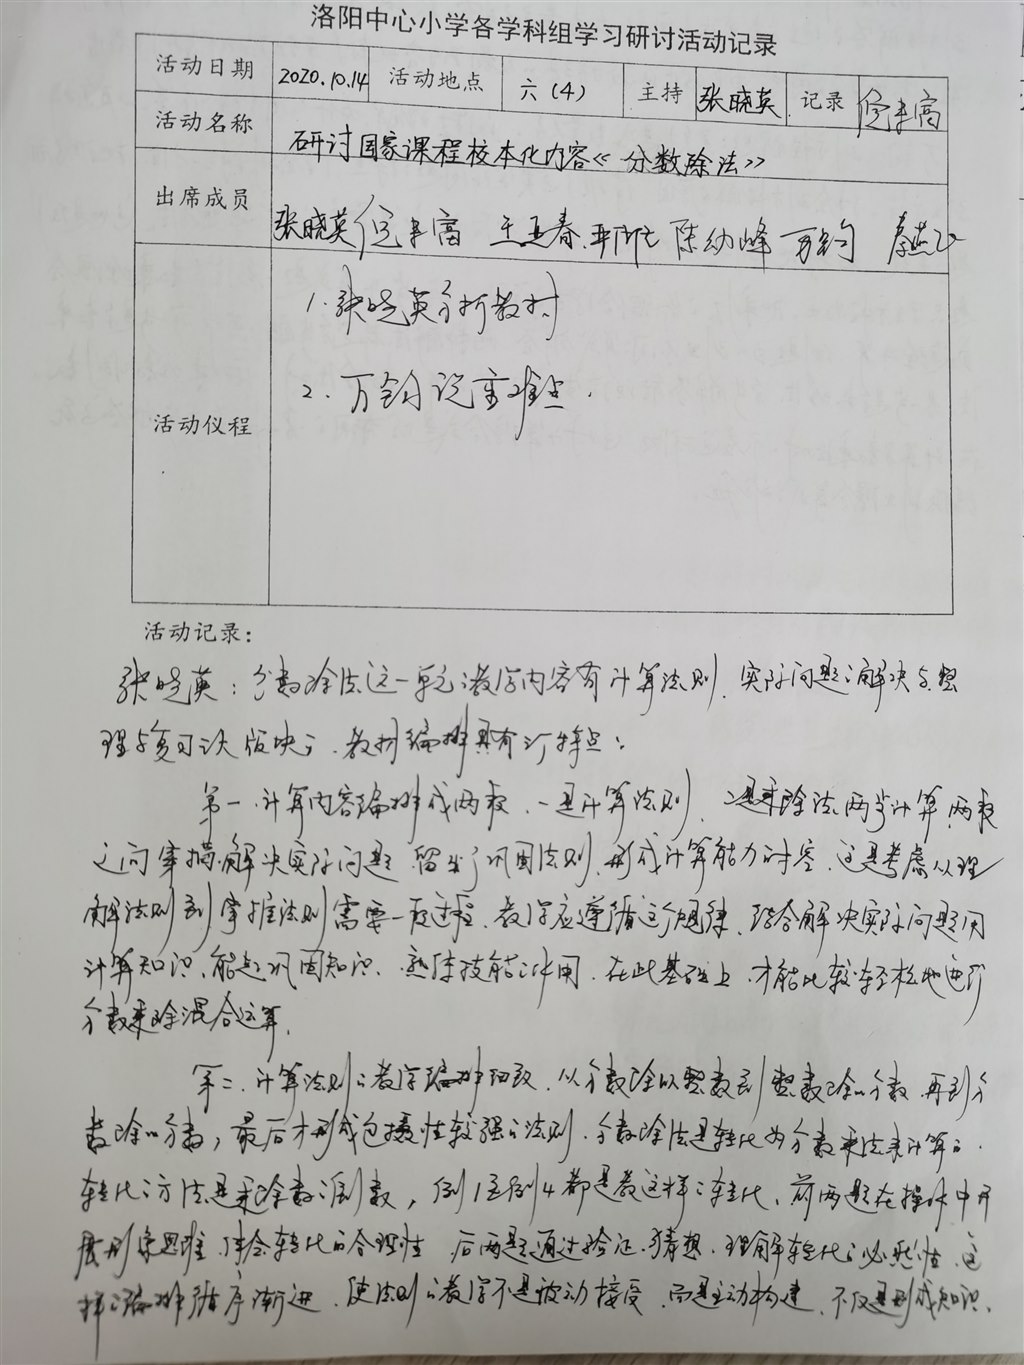 洛阳中心小学各学科组学习研讨活动记录
活动日期 2020.10.14 活动地点 六(4) 主持 张晓英 记录 倪丰高
活动名称 研讨国家课程校本化内容《分数除法》
出席成员 张晓英 倪丰高 王亚春 陈幼峰 万钧
活动仪程
1.张晓英分析教材
2.万钧说重难点.
活动记录:
张晓英:分数除法这一单元的教学内容有计算法则、实际问题的解决与整
理与复习三大版块的.教材编排具有以下特点:
第一.计算内容编排成两段.一是计算法则,二是乘除法两步计算.两段
之间穿插解决实际问题.留出了巩固法则、形成计算能力的时空.这是考虑从理
解法则到掌握法则需要一段过程.教学应遵循这个规律.结合解决实际问题用
计算知识.能起巩固知识、熟练技能的作用.在此基础上.才能比较轻松地进行
分数乘除混合运算.
第二.计算法则的教学编排细致.从分数除以整数到整数除以分数.再到分
数除以分数,最后才形成包摄性较强的法则.分数除法是转化为分数乘法来计算的.
转化的方法是乘除数的倒数,例1至例4都是教这样的转化.前两题在操作中开
展形象思维 体会转化的合理性 后两题通过验证.猜想.理解转化的必然性.这
样的编排循序渐进.使法则的教学不是被动接受.而是主动构建.不仅是形成知识.